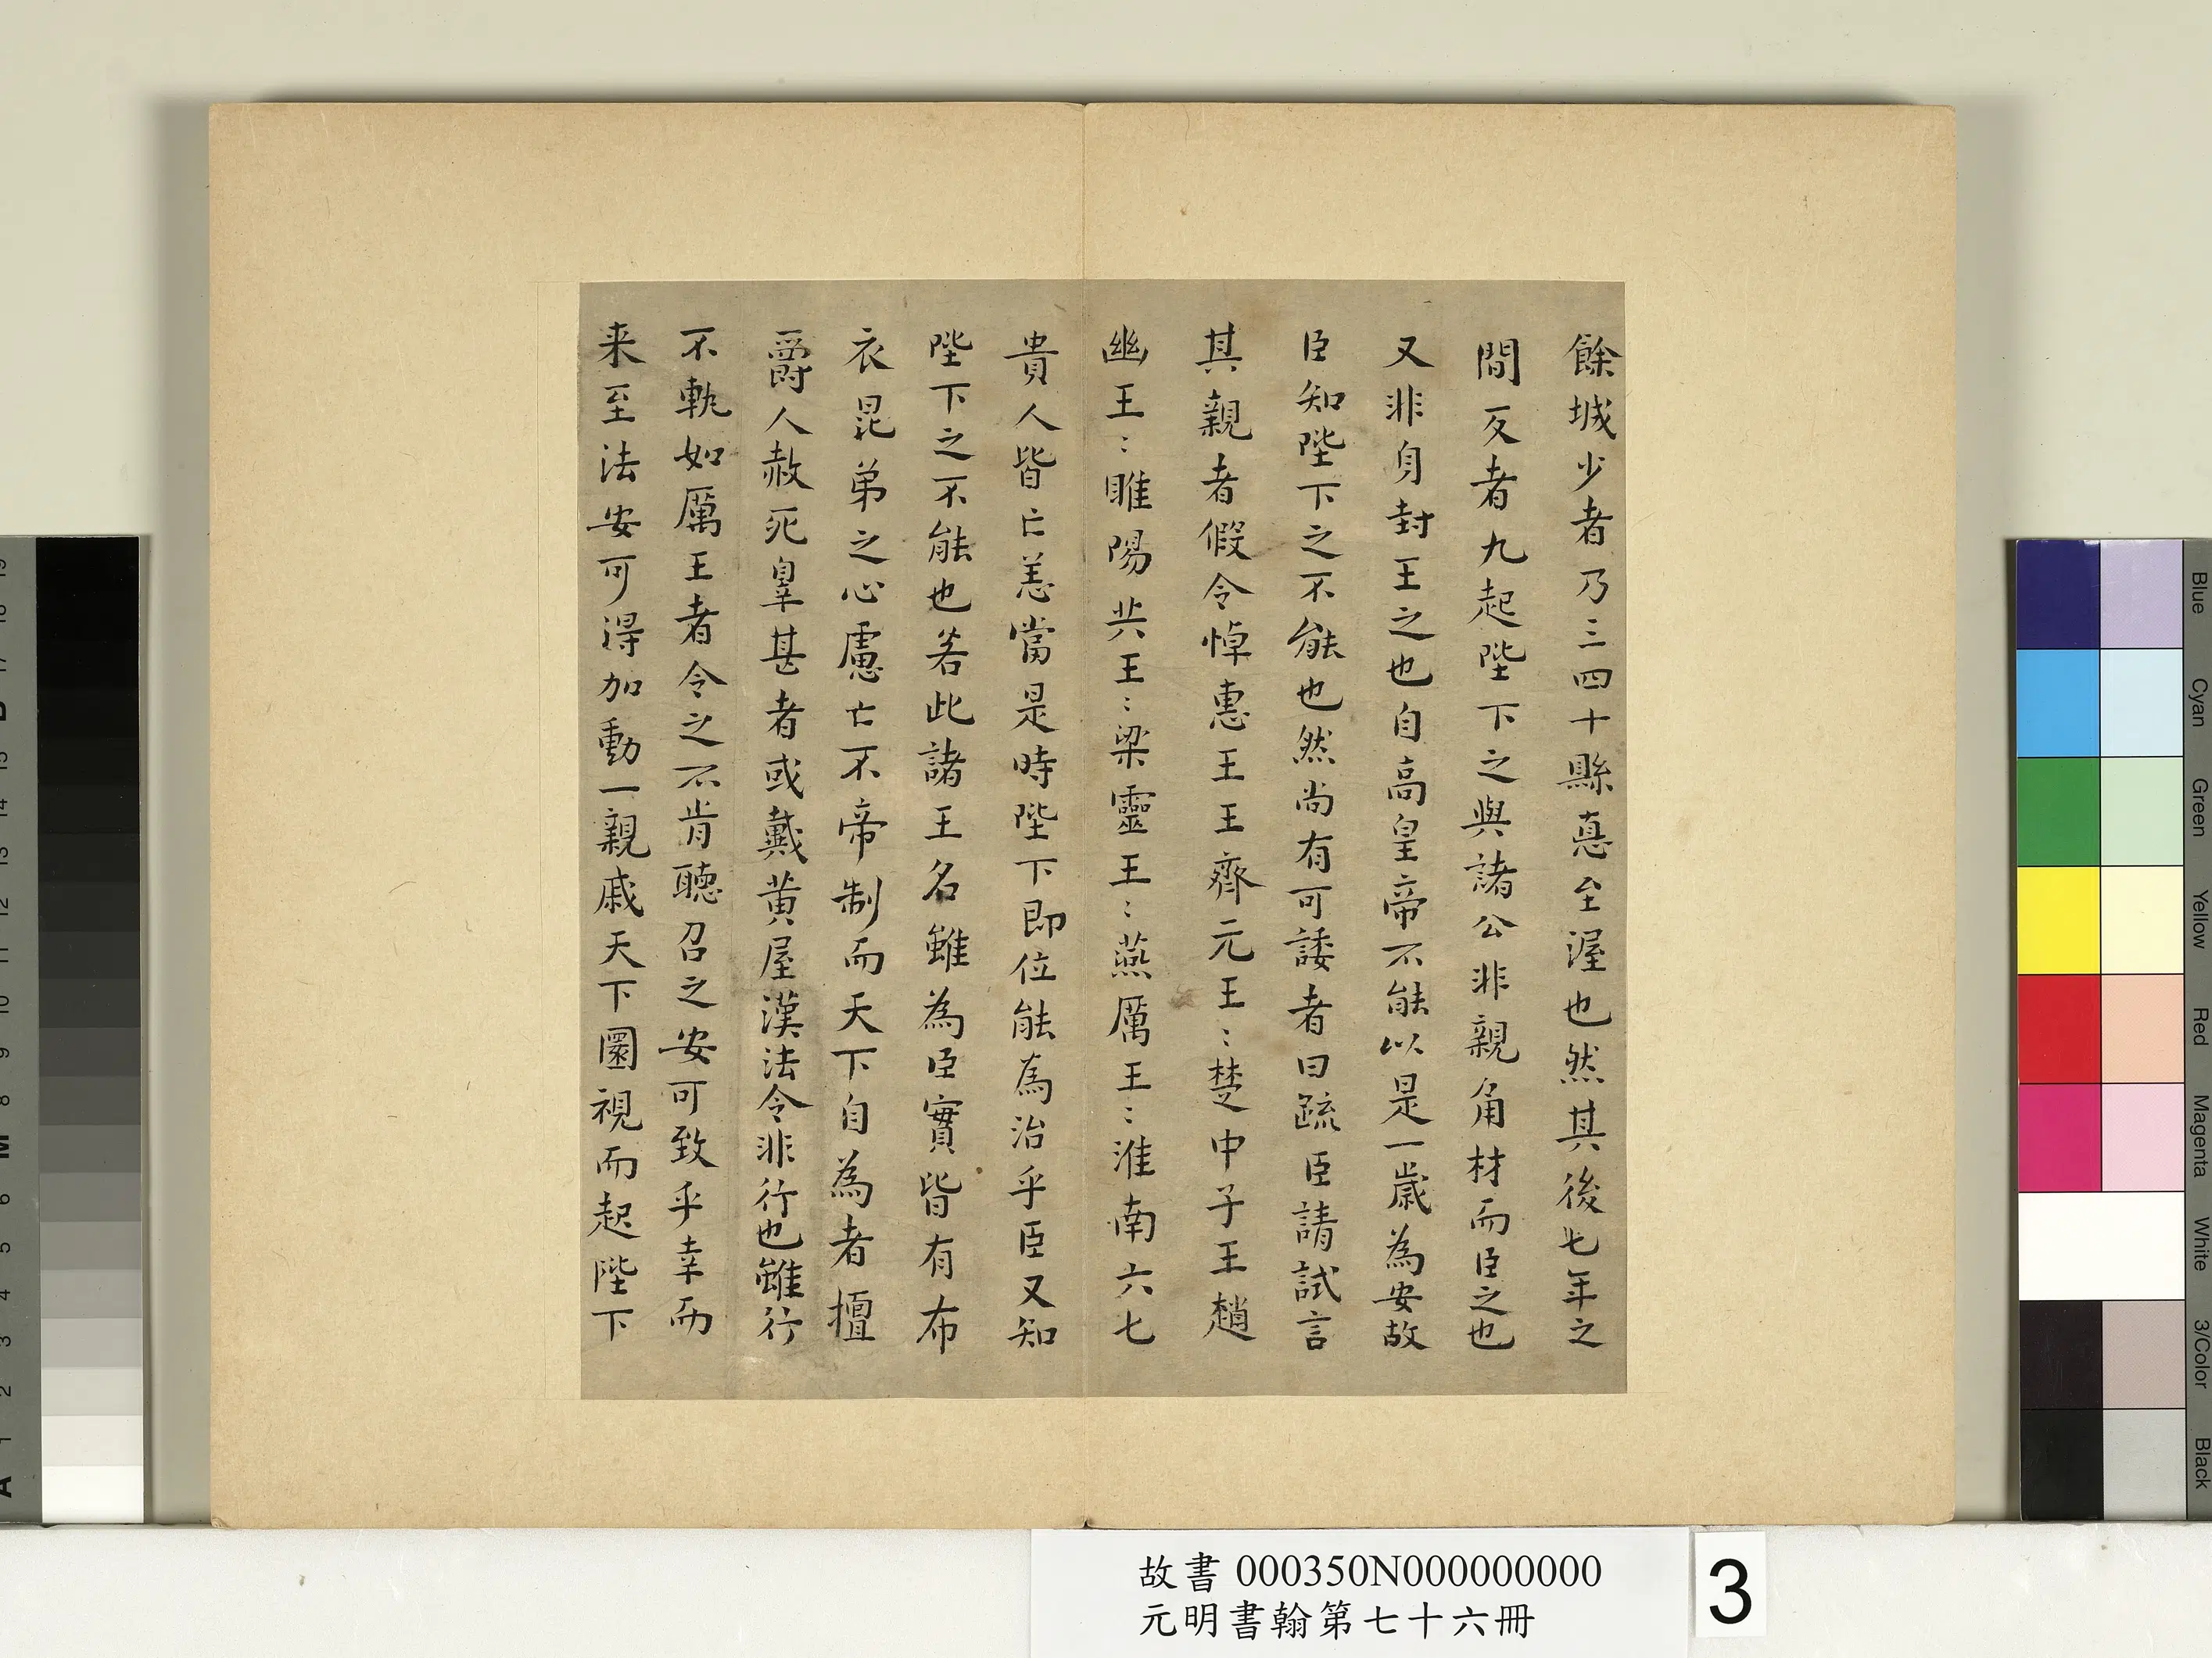 餘城少者乃三四十縣惪至渥也然其後七年之
間反者九起陛下之與諸公非親角材而臣之也
又非身封王之也自高皇帝不能以是一歲為安故
臣知陛下之不能也然尚有可諉者曰疏臣請試言
其親者假令悼惠王王齊元王:楚中子王趙
幽王:睢陽共王:梁靈王:燕厲王:淮南六七
貴人皆亡恙當是時陛下即位能為治乎臣又知
陛下之不能也若此諸王名雖為臣實皆有布
衣昆弟之心慮亡不帝制而天下自為者擅
爵人赦死辠甚者或戴黃屋漢法令非行也雖行
不軌如厲王者令之不肯聽召之安可致乎幸而
来至法安可得加動一親戚天下圜視而起陛下
故書 000350N000000000
元明書翰第七十六冊
3
Blue
Cyan
Green
Yellow
Red
Magenta
White
3/Color
Black
19
18
17
16
15
14
13
12
11
10
9
8
M
6
5
4
3
2
1
A